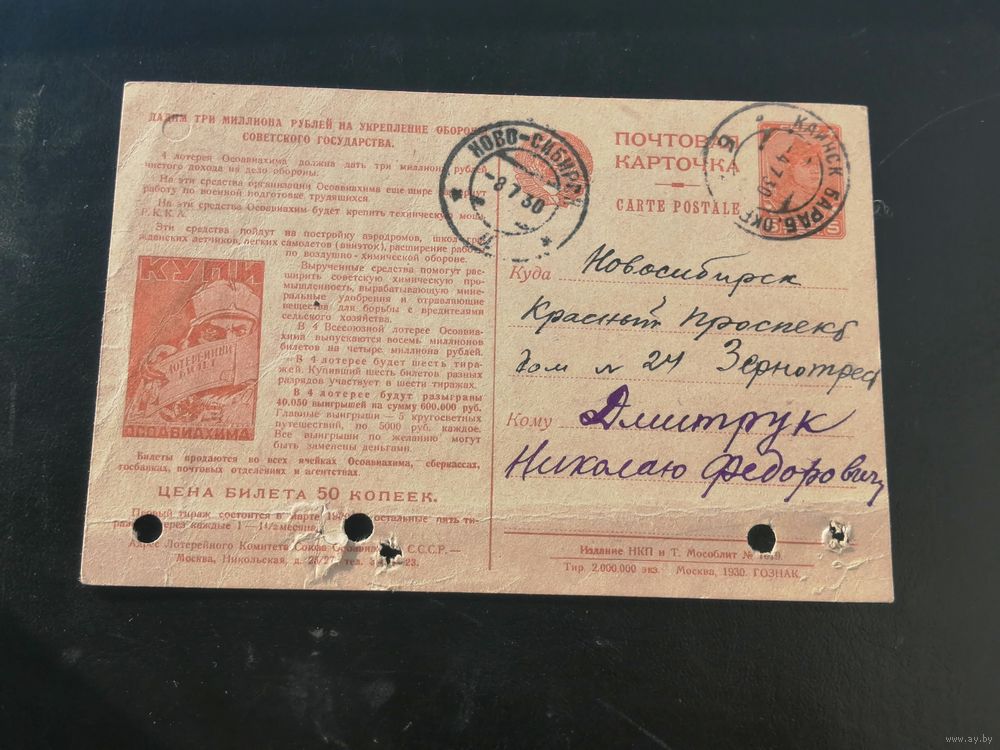 ДАДИМ ТРИ МИЛЛИОНА РУБЛЕЙ НА УКРЕПЛЕНИЕ ОБОРОНЫ
СОВЕТСКОГО ГОСУДАРСТВА.
4 лотерея Осоавиахима должна дать три миллиона рублей
чистого дохода на дело обороны.
На эти средства организации Осоавиахима еще шире
работу по военной подготовке трудящихся.
На эти средства Осоавиахим будет крепить техническую мощь
Р.К.К.А.
Эти средства пойдут на постройку аэродромов, школ
жданских летчиков, легких самолетов (авиэток), расширение работы
по воздушно-химической обороне.
Вырученные средства помогут рас-
ширить советскую химическую про-
мышленность, вырабатывающую мине-
ральные удобрения и отравляющие
вещества для борьбы с вредителями
сельского хозяйства.
В 4 Всесоюзной лотерее Осоавиа-
хима выпускаются восемь миллионов
билетов на четыре миллиона рублей.
В 4 лотерее будет шесть тира-
жей. Купивший шесть билетов разных
разрядов участвует в шести тиражах.
В 4 лотерее будут разыграны
40.050 выигрышей на сумму 600.000 руб.
Главные выигрыши — 5 кругосветных
путешествий, по 5000 руб. каждое.
Все выигрыши по желанию могут
быть заменены деньгами.
КУПИ
ЛОТЕРЕЙНЫЙ
БИЛЕТ
ОСОАВИАХИМА
Билеты продаются во всех ячейках Осоавиахима, сберкассах,
госбанках, почтовых отделениях и агентствах.
ЦЕНА БИЛЕТА 50 КОПЕЕК.
Первый тираж состоится в марте остальные пять ти-
через каждые 1—1½ месяца.
Адрес Лотерейного Комитета Союза С.С.С.Р.—
Москва, Никольская, д. тел.
НОВО-СИБИРСК
-8 7 30
ПОЧТОВАЯ
КАРТОЧКА
CARTE POSTALE
КАИНСК БАРАБ. ОКР.
4 7 30
Куда Новосибирск
Красный проспект
дом № 24 Зернотрест
Кому Дмитрук
Николаю Федоровичу
Издание НКП и Т. Мособлит №
Тир. 2.000.000 экз. Москва, 1930. ГОЗНАК.
www.ay.by